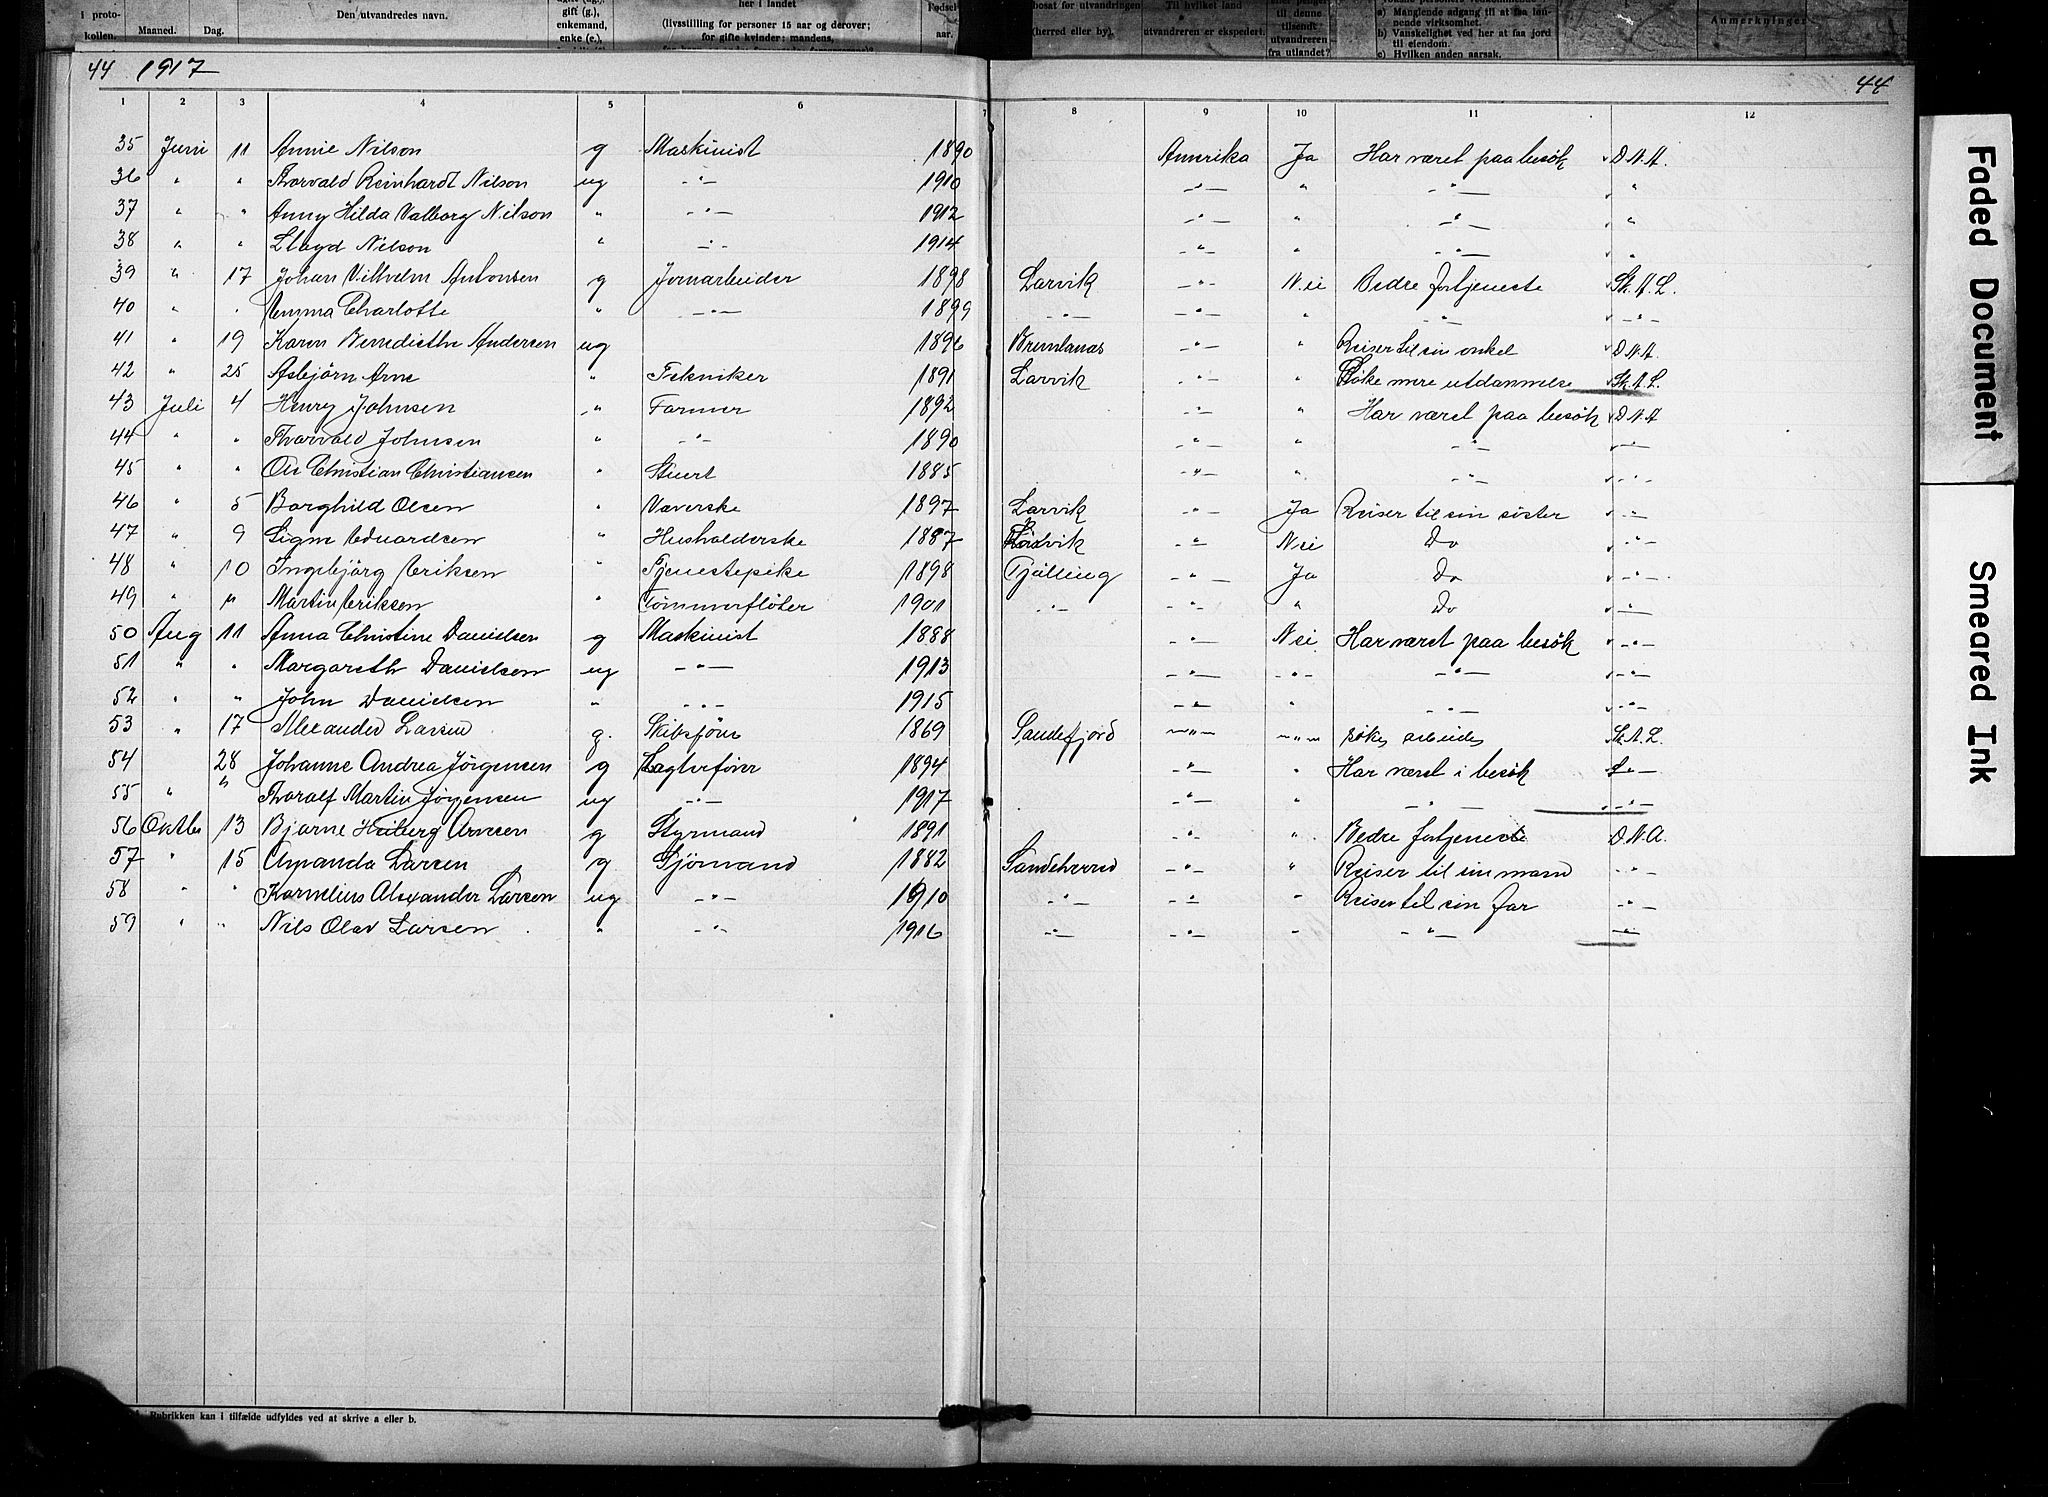 i proto- kollen. Maaned. Dag. Den utvandredes navn. gift (g.), enkemand, enke (e.), her i landet (livsstilling for personer 15 aar og derover; for gifte kvinder: mandens, Fødsels- aar. bosat før utvandringen (herred eller by). Til hvilket land utvandreren er ekspedert. til denne tilsendt utvandreren fra utlandet? a) Manglende adgang til at faa løn- nende virksomhet. b) Vanskelighet ved her at faa jord til eiendom. c) Hvilken anden aarsak. Anmerkninger
44 1917 44
1 2 3 4 5 6 7 8 9 10 11 12
35 Juni 11 Annie Nilson g Maskinist 1890 Amerika Ja Har været paa besök D.N.A.
36 " " Thorvald Reinhardt Nilson ug -"- 1910 -"- " -"- "
37 " " Anny Hilda Valborg Nilson " -"- 1912 -"- " -"- "
38 " " Lloyd Nilson " -"- 1914 -"- " -"- "
39 " 17 Johan Vilhelm Antonsen g Jernarbeider 1898 Larvik -"- Nei Bedre fortjeneste Sk.A.L.
40 " " Emma Charlotte " -"- 1899 -"- -"- " -"- -"-
41 " 19 Karen Benedicthe Andersen ug 1896 Brunlanæs -"- " Reiser til sin onkel D.N.A.
42 " 25 Asbjörn Arne " Tekniker 1891 Larvik -"- " Söke mere utdannelse Sk.A.L.
43 Juli 4 Henry Johnsen " Farmer 1892 -"- " Har været paa besök D.N.A
44 " " Thorvald Johnsen " -"- 1890 -"- " -"- -"-
45 " " Ole Christian Christiansen " Stuert 1885 -"- " -"- -"-
46 " 5 Borghild Olsen " Væverske 1897 Larvik -"- Ja Reiser til sin söster -"-
47 " 9 Signe Eduardsen " Husholderske 1887 Larvik -"- Nei Do -"-
48 " 10 Ingebjörg Eriksen " Tjenestepike 1898 Tjölling -"- Ja Do -"-
49 " " Martin Eriksen " Tømmerfløter 1901 -"- -"- " Do -"-
50 Aug 11 Anna Christine Danielsen g Maskinist 1888 -"- Nei Har været paa besök -"-
51 " " Margareth Danielsen ug -"- 1913 -"- -"- -"- -"-
52 " " John Danielsen " -"- 1915 -"- " -"- -"-
53 " 17 Alexander Larsen g. Skibsförer 1869 Sandefjord -"- -"- söke arbeide Sk.A.L.
54 28 Johanne Andrea Jörgensen g Lægterfører 1894 -"- " Har været i besök -"-
55 " " Thoralf Martin Jörgensen ug -"- 1917 -"- " -"- -"-
56 Oktbr 13 Bjarne Heiberg Arnesen g Styrmand 1891 -"- " Bedre fortjeneste D.N.A.
57 " 15 Amanda Larsen g Sjömand 1882 Sandeherred -"- " Reiser til sin mann -"-
58 " " Kornelius Alexander Larsen ug -"- 1910 -"- -"- " Reiser til sin far -"-
59 " " Nils Olav Larsen " -"- 1916 -"- -"- " -"- -"-
Rubrikken kan i tilfælde utfyldes ved at skrive a eller b.
Faded Document
Smeared Ink